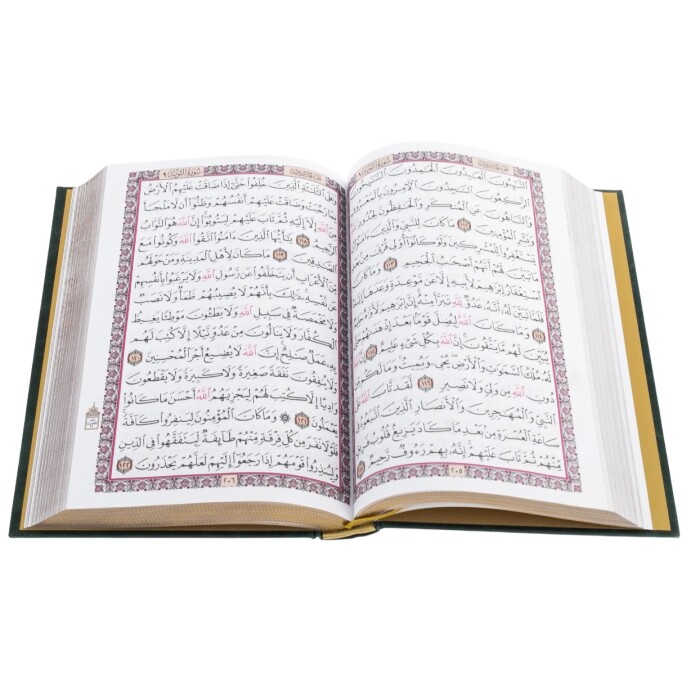 سُورَةُ التَّوْبَةِ ٩
التَّائِبُونَ الْعَابِدُونَ الْحَامِدُونَ السَّائِحُونَ
الرَّاكِعُونَ السَّاجِدُونَ الْآمِرُونَ بِالْمَعْرُوفِ
وَالنَّاهُونَ عَنِ الْمُنكَرِ وَالْحَافِظُونَ لِحُدُودِ
الْمُؤْمِنِينَ ١١٢ مَا كَانَ لِلنَّبِيِّ وَالَّذِينَ آمَنُوا
يَسْتَغْفِرُوا لِلْمُشْرِكِينَ وَلَوْ كَانُوا أُولِي قُرْبَىٰ مِن
تَبَيَّنَ لَهُمْ أَنَّهُمْ أَصْحَابُ الْجَحِيمِ ١١٣
اسْتِغْفَارُ إِبْرَاهِيمَ لِأَبِيهِ إِلَّا عَن مَّوْعِدَةٍ وَعَدَهَا
فَلَمَّا تَبَيَّنَ لَهُ أَنَّهُ عَدُوٌّ لِّلَّهِ تَبَرَّأَ مِنْهُ إِنَّ إِبْرَاهِيمَ
١١٤ وَمَا كَانَ اللَّهُ لِيُضِلَّ قَوْمًا بَعْدَ إِذْ هَدَاهُمْ
يُبَيِّنَ لَهُم مَّا يَتَّقُونَ إِنَّ اللَّهَ بِكُلِّ شَيْءٍ عَلِيمٌ ١١٥
لَهُ مُلْكُ السَّمَاوَاتِ وَالْأَرْضِ يُحْيِي وَيُمِيتُ وَمَا لَكُم
دُونِ اللَّهِ مِن وَلِيٍّ وَلَا نَصِيرٍ ١١٦ لَّقَد تَّابَ اللَّهُ
النَّبِيِّ وَالْمُهَاجِرِينَ وَالْأَنصَارِ الَّذِينَ اتَّبَعُوهُ
سَاعَةِ الْعُسْرَةِ مِن بَعْدِ مَا كَادَ يَزِيغُ قُلُوبُ فَرِيقٍ
مِّنْهُمْ ثُمَّ تَابَ عَلَيْهِمْ إِنَّهُ بِهِمْ رَءُوفٌ رَّحِيمٌ
٢٠٥
سُورَةُ التَّوْبَةِ ٩
وَعَلَى الثَّلَاثَةِ الَّذِينَ خُلِّفُوا حَتَّىٰ إِذَا ضَاقَتْ عَلَيْهِمُ الْأَرْضُ
بِمَا رَحُبَتْ وَضَاقَتْ عَلَيْهِمْ أَنفُسُهُمْ وَظَنُّوا أَن لَّا مَلْجَأَ
مِنَ اللَّهِ إِلَّا إِلَيْهِ ثُمَّ تَابَ عَلَيْهِمْ لِيَتُوبُوا إِنَّ اللَّهَ هُوَ التَّوَّابُ
الرَّحِيمُ ١١٨ يَا أَيُّهَا الَّذِينَ آمَنُوا اتَّقُوا اللَّهَ وَكُونُوا مَعَ
الصَّادِقِينَ ١١٩ مَا كَانَ لِأَهْلِ الْمَدِينَةِ وَمَنْ حَوْلَهُم
مِّنَ الْأَعْرَابِ أَن يَتَخَلَّفُوا عَن رَّسُولِ اللَّهِ وَلَا يَرْغَبُوا بِأَنفُسِهِمْ
عَن نَّفْسِهِ ذَٰلِكَ بِأَنَّهُمْ لَا يُصِيبُهُمْ ظَمَأٌ وَلَا نَصَبٌ
وَلَا مَخْمَصَةٌ فِي سَبِيلِ اللَّهِ وَلَا يَطَئُونَ مَوْطِئًا يَغِيظُ
الْكُفَّارَ وَلَا يَنَالُونَ مِنْ عَدُوٍّ نَّيْلًا إِلَّا كُتِبَ لَهُم
بِهِ عَمَلٌ صَالِحٌ إِنَّ اللَّهَ لَا يُضِيعُ أَجْرَ الْمُحْسِنِينَ ١٢٠
وَلَا يُنفِقُونَ نَفَقَةً صَغِيرَةً وَلَا كَبِيرَةً وَلَا يَقْطَعُونَ
وَادِيًا إِلَّا كُتِبَ لَهُمْ لِيَجْزِيَهُمُ اللَّهُ أَحْسَنَ مَا كَانُوا
يَعْمَلُونَ ١٢١ ۞ وَمَا كَانَ الْمُؤْمِنُونَ لِيَنفِرُوا كَافَّةً
فَلَوْلَا نَفَرَ مِن كُلِّ فِرْقَةٍ مِّنْهُمْ طَائِفَةٌ لِّيَتَفَقَّهُوا فِي الدِّينِ
وَلِيُنذِرُوا قَوْمَهُمْ إِذَا رَجَعُوا إِلَيْهِمْ لَعَلَّهُمْ يَحْذَرُونَ ١٢٢
٢٠٦